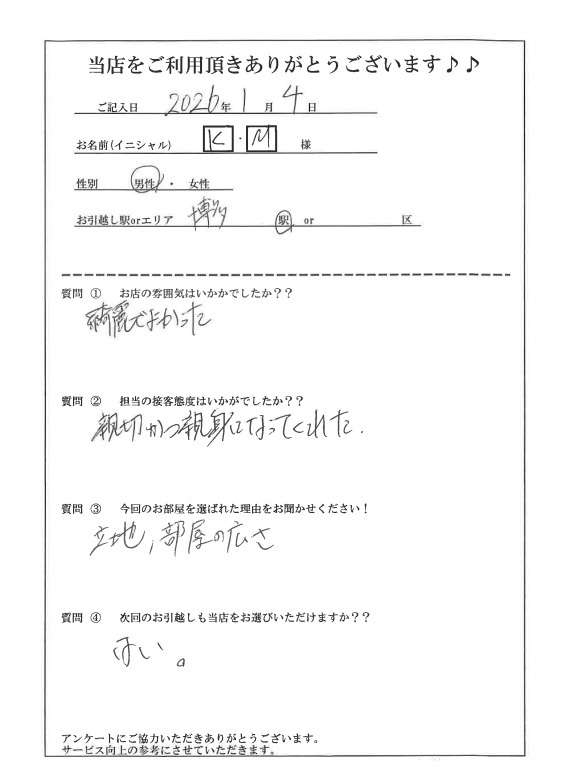 当店をご利用頂きありがとうございます♪♪
ご記入日 2026年 1月 4日
お名前(イニシャル) K・M 様
性別 男性・女性
お引越し駅orエリア 博多 駅 or 区
質問 ① お店の雰囲気はいかかでしたか??
綺麗でよかった
質問 ② 担当の接客態度はいかがでしたか??
親切かつ親身になってくれた.
質問 ③ 今回のお部屋を選ばれた理由をお聞かせください!
立地,部屋の広さ
質問 ④ 次回のお引越しも当店をお選びいただけますか??
はい。
アンケートにご協力いただきありがとうございます。
サービス向上の参考にさせていただきます。